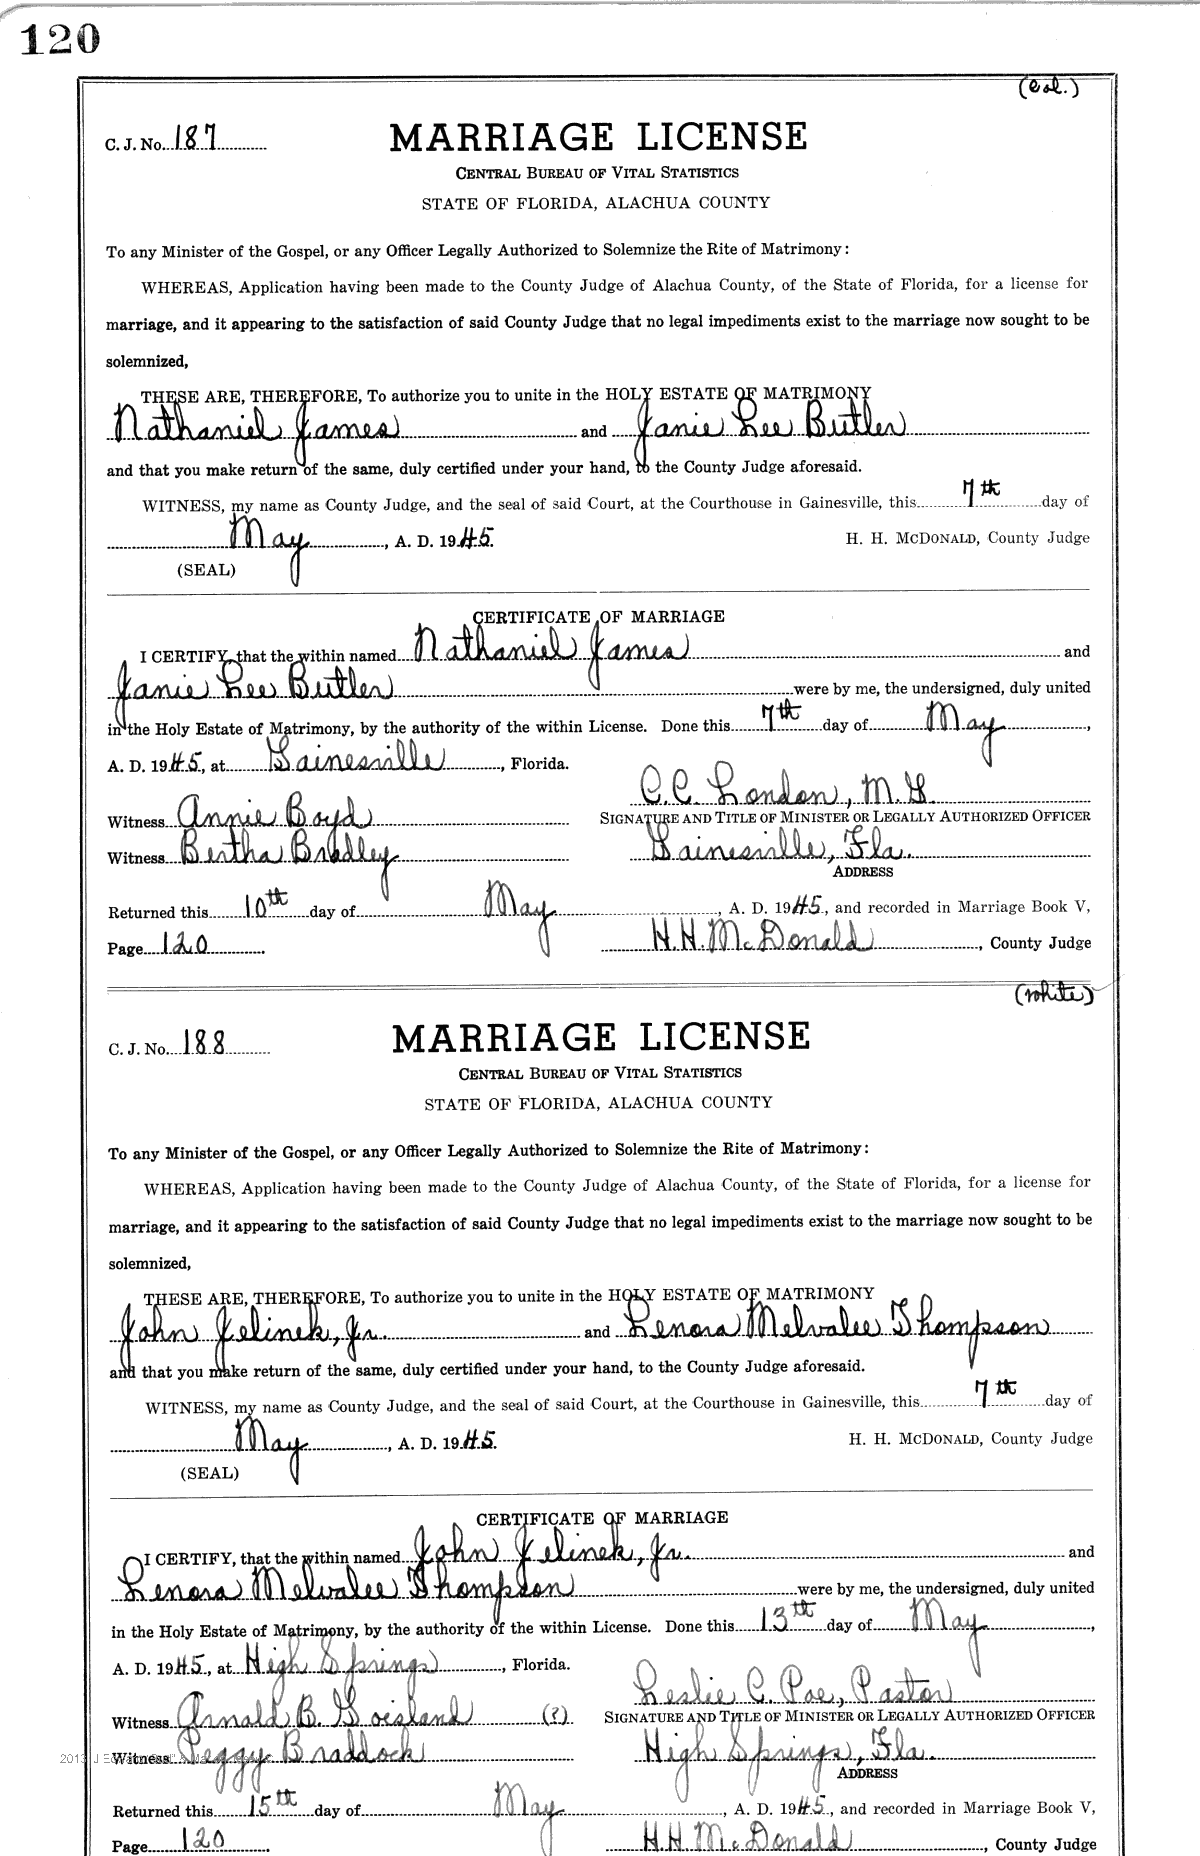 120
(Col.)
C. J. No. 187
MARRIAGE LICENSE
CENTRAL BUREAU OF VITAL STATISTICS
STATE OF FLORIDA, ALACHUA COUNTY
To any Minister of the Gospel, or any Officer Legally Authorized to Solemnize the Rite of Matrimony:
WHEREAS, Application having been made to the County Judge of Alachua County, of the State of Florida, for a license for
marriage, and it appearing to the satisfaction of said County Judge that no legal impediments exist to the marriage now sought to be
solemnized,
THESE ARE, THEREFORE, To authorize you to unite in the HOLY ESTATE OF MATRIMONY
Nathaniel James and Janie Lee Butler
and that you make return of the same, duly certified under your hand, to the County Judge aforesaid.
WITNESS, my name as County Judge, and the seal of said Court, at the Courthouse in Gainesville, this 7th day of
May, A. D. 1945. H. H. MCDONALD, County Judge
(SEAL)
CERTIFICATE OF MARRIAGE
I CERTIFY, that the within named Nathaniel James and
Janie Lee Butler were by me, the undersigned, duly united
in the Holy Estate of Matrimony, by the authority of the within License. Done this 7th day of May,
A. D. 1945, at Gainesville, Florida.
C. C. London, M. G.
Witness Annie Boyd SIGNATURE AND TITLE OF MINISTER OR LEGALLY AUTHORIZED OFFICER
Witness Bertha Bradley Gainesville, Fla.
ADDRESS
Returned this 10th day of May, A. D. 1945, and recorded in Marriage Book V,
Page 120 H. H. McDonald, County Judge
(white)
C. J. No. 188
MARRIAGE LICENSE
CENTRAL BUREAU OF VITAL STATISTICS
STATE OF FLORIDA, ALACHUA COUNTY
To any Minister of the Gospel, or any Officer Legally Authorized to Solemnize the Rite of Matrimony:
WHEREAS, Application having been made to the County Judge of Alachua County, of the State of Florida, for a license for
marriage, and it appearing to the satisfaction of said County Judge that no legal impediments exist to the marriage now sought to be
solemnized,
THESE ARE, THEREFORE, To authorize you to unite in the HOLY ESTATE OF MATRIMONY
John Jelinek, Jr. and Lenora Melvalee Thompson
and that you make return of the same, duly certified under your hand, to the County Judge aforesaid.
WITNESS, my name as County Judge, and the seal of said Court, at the Courthouse in Gainesville, this 7th day of
May, A. D. 1945. H. H. MCDONALD, County Judge
(SEAL)
CERTIFICATE OF MARRIAGE
I CERTIFY, that the within named John Jelinek, Jr. and
Lenora Melvalee Thompson were by me, the undersigned, duly united
in the Holy Estate of Matrimony, by the authority of the within License. Done this 13th day of May,
A. D. 1945, at High Springs, Florida.
Leslie C. Poe, Pastor
Witness Arnold B. Goisland (?) SIGNATURE AND TITLE OF MINISTER OR LEGALLY AUTHORIZED OFFICER
Witness Peggy Braddock High Springs, Fla.
ADDRESS
Returned this 15th day of May, A. D. 1945, and recorded in Marriage Book V,
Page 120 H. H. McDonald, County Judge